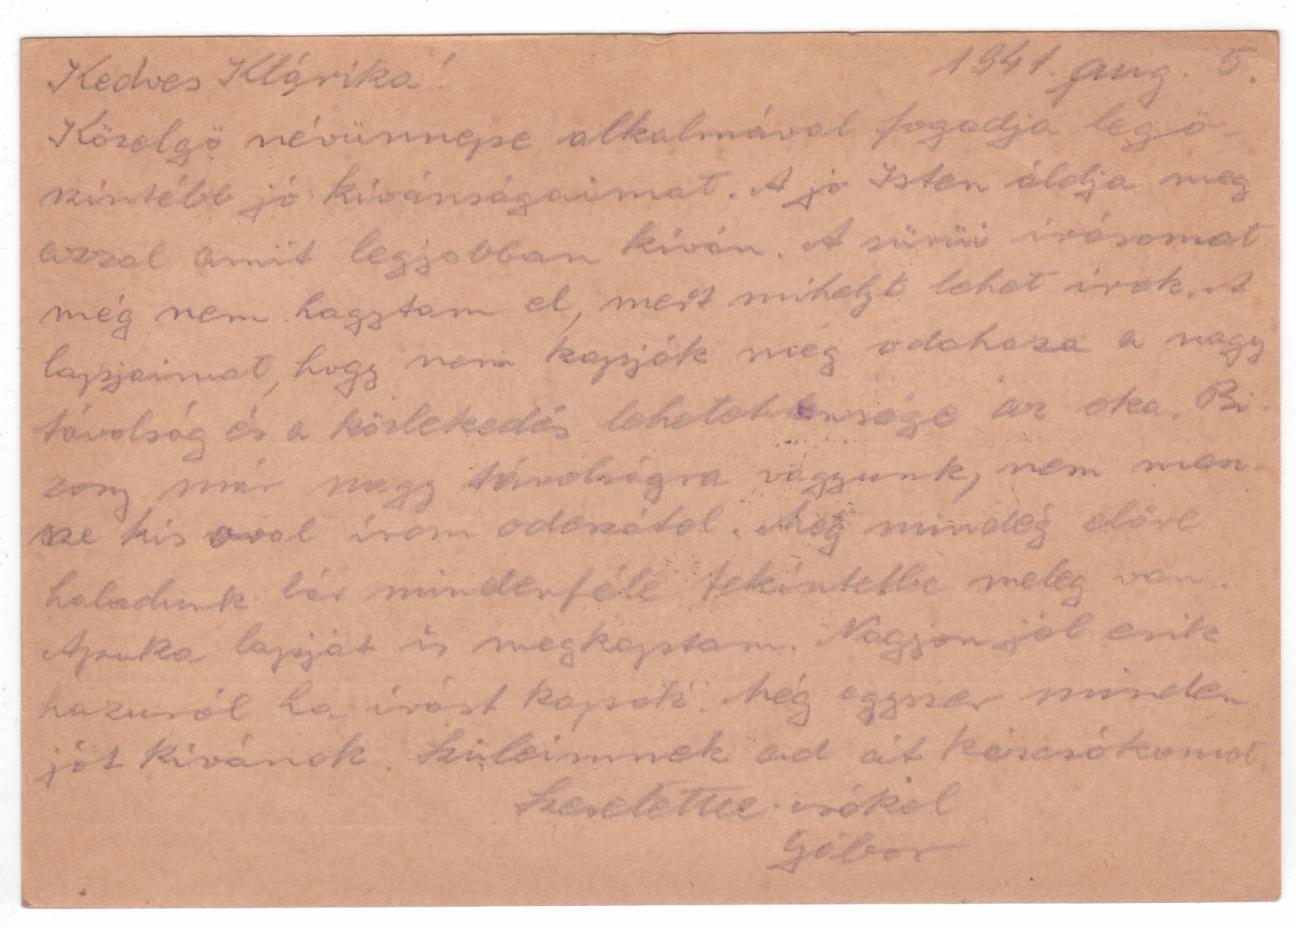 Kedves Klárika! 1941. aug. 5.
Közelgő névünnepe alkalmával fogadja legő-
szintébb jó kivánságaimat. A jó Isten áldja meg
azzal amit legjobban kíván. A sürüi irásomat
még nem hagytam el, mert mihelyt lehet irok. A
lapjaimat, hogy nem kapják meg odahaza a nagy
távolság és a közlekedés lehetetlensége az oka. Bi-
zony már nagy távolságra vagyunk, nem messze
kis irom odeszától. Még mindég előre
haladunk bár mindenféle tekintetbe meleg van.
Apuka lapját is megkaptam. Nagyon jól esik
hazuról ha írást kapok. Még egyszer minden
jót kivánok. Szüleimnek ad át kézcsókomat
Szeretettel csókol
Gábor